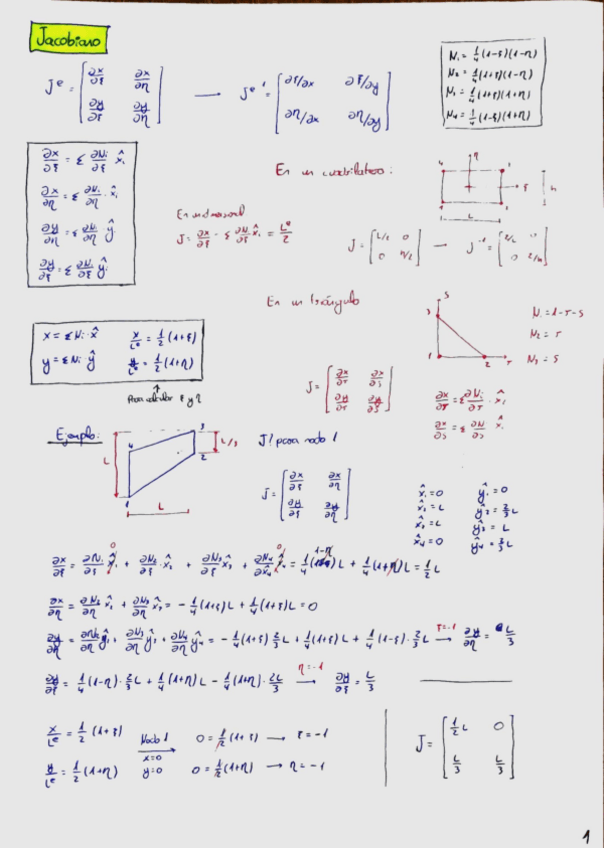 Jacobiano
Jᵉ = [∂x/∂ξ ∂x/∂η ; ∂y/∂ξ ∂y/∂η] → Jᵉ⁻¹ = [∂ξ/∂x ∂ξ/∂y ; ∂η/∂x ∂η/∂y]
N₁ = 1/4 (1-ξ)(1-η)
N₂ = 1/4 (1+ξ)(1-η)
N₃ = 1/4 (1+ξ)(1+η)
N₄ = 1/4 (1-ξ)(1+η)
∂x/∂ξ = Σ ∂Nᵢ/∂ξ · x̂ᵢ
∂x/∂η = Σ ∂Nᵢ/∂η · x̂ᵢ
∂y/∂η = Σ ∂Nᵢ/∂η · ŷᵢ
∂y/∂ξ = Σ ∂Nᵢ/∂ξ ŷᵢ
En un cuadrilátero:
4 η 3
ξ h
1
L
En unidimensional
J = ∂x/∂ξ = Σ ∂Nᵢ/∂ξ x̂ᵢ = Lᵉ/2
J = [L/2 0 ; 0 h/2] → J⁻¹ = [2/L 0 ; 0 2/h]
En un triángulo
S
3
1 2 r
N₁ = 1-r-s
N₂ = r
N₃ = s
J = [∂x/∂r ∂x/∂s ; ∂y/∂r ∂y/∂s]
∂x/∂r = Σ ∂Nᵢ/∂r · x̂ᵢ
∂x/∂s = Σ ∂Nᵢ/∂s x̂ᵢ
x = ΣNᵢ · x̂ x/Lᵉ = 1/2 (1+ξ)
y = ΣNᵢ ŷ y/Lᵉ = 1/2 (1+η)
Para calcular ξ y η
Ejemplo:
L 4 3 2 1 L L/3
J? para nodo 1
J = [∂x/∂ξ ∂x/∂η ; ∂y/∂ξ ∂y/∂η]
x̂₁ = 0 ŷ₁ = 0
x̂₂ = L ŷ₂ = 2/3 L
x̂₃ = L ŷ₃ = L
x̂₄ = 0 ŷ₄ = 2/3 L
∂x/∂ξ = ∂N₁/∂ξ x̂₁ + ∂N₂/∂ξ · x̂₂ + ∂N₃/∂ξ x̂₃ + ∂N₄/∂x₄ x̂₄ = 1/4 (1-η) L + 1/4 (1+η) L = 1/2 L
∂x/∂η = ∂N₂/∂η x̂₂ + ∂N₃/∂η x̂₃ = -1/4 (1+ξ) L + 1/4 (1+ξ) L = 0
∂y/∂η = ∂N₂/∂η ŷ₂ + ∂N₃/∂η ŷ₃ + ∂N₄/∂η ŷ₄ = -1/4 (1+ξ) 2/3 L + 1/4 (1+ξ) L + 1/4 (1-ξ) · 2/3 L → ξ=-1 ∂y/∂η = L/3
∂y/∂ξ = 1/4 (1-η) · 2/3 L + 1/4 (1+η) L - 1/4 (1+η) · 2L/3 → η=-1 ∂y/∂ξ = L/3
x/Lᵉ = 1/2 (1+ξ) Nodo 1 0 = 1/2 (1+ξ) → ξ = -1
x=0
y/Lᵉ = 1/2 (1+η) y=0 0 = 1/2 (1+η) → η = -1
J = [1/2 L 0 ; L/3 L/3]
1